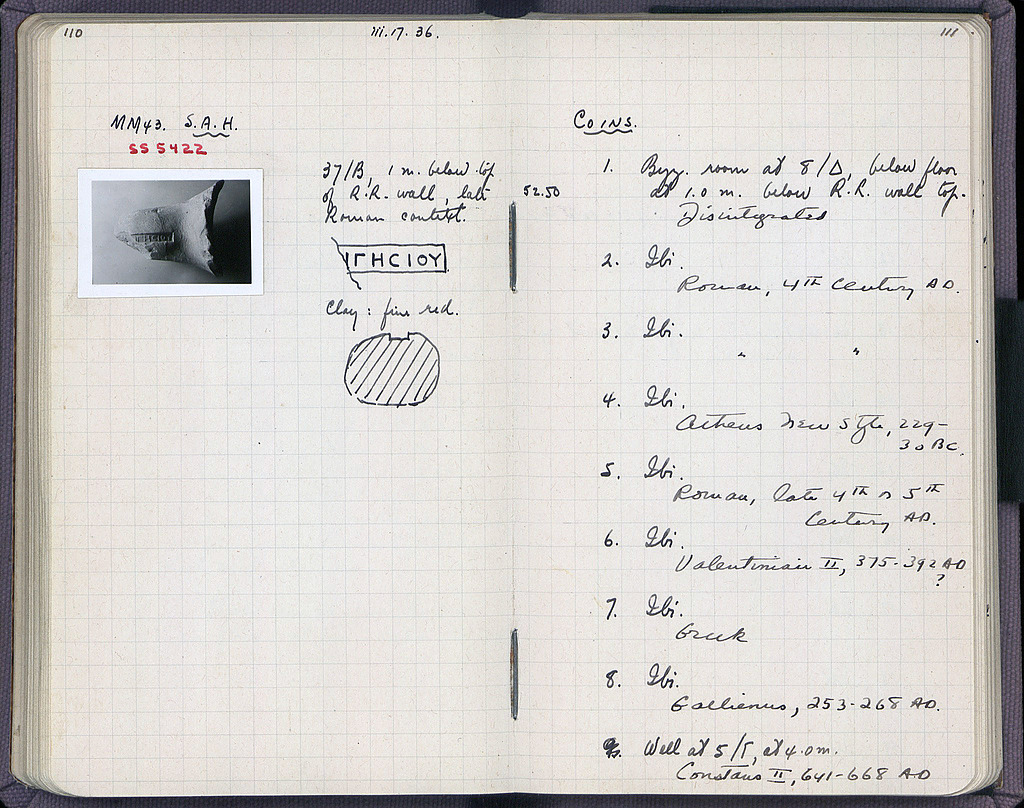 110
iii.17.36.
MM43. S.A.H.
SS 5422
37/B, 1 m. below top
of R.R. wall, late
Roman context.
ΙΓΗCΙΟΥ
Clay: fine red.
111
COINS.
52.50
1. Byz. room at 8/Δ, below floor
at 1.0 m. below R.R. wall top.
Disintegrated
2. Ibi.
Roman, 4TH Century AD.
3. Ibi.
" "
4. Ibi.
Athens New Style, 229-
30 BC.
5. Ibi.
Roman, late 4TH or 5TH
Century AD.
6. Ibi.
Valentinian II, 375-392 AD
?
7. Ibi.
Greek
8. Ibi.
Gallienus, 253-268 AD.
9. Well at 5/Γ, at 4.0m.
Constans II, 641-668 AD